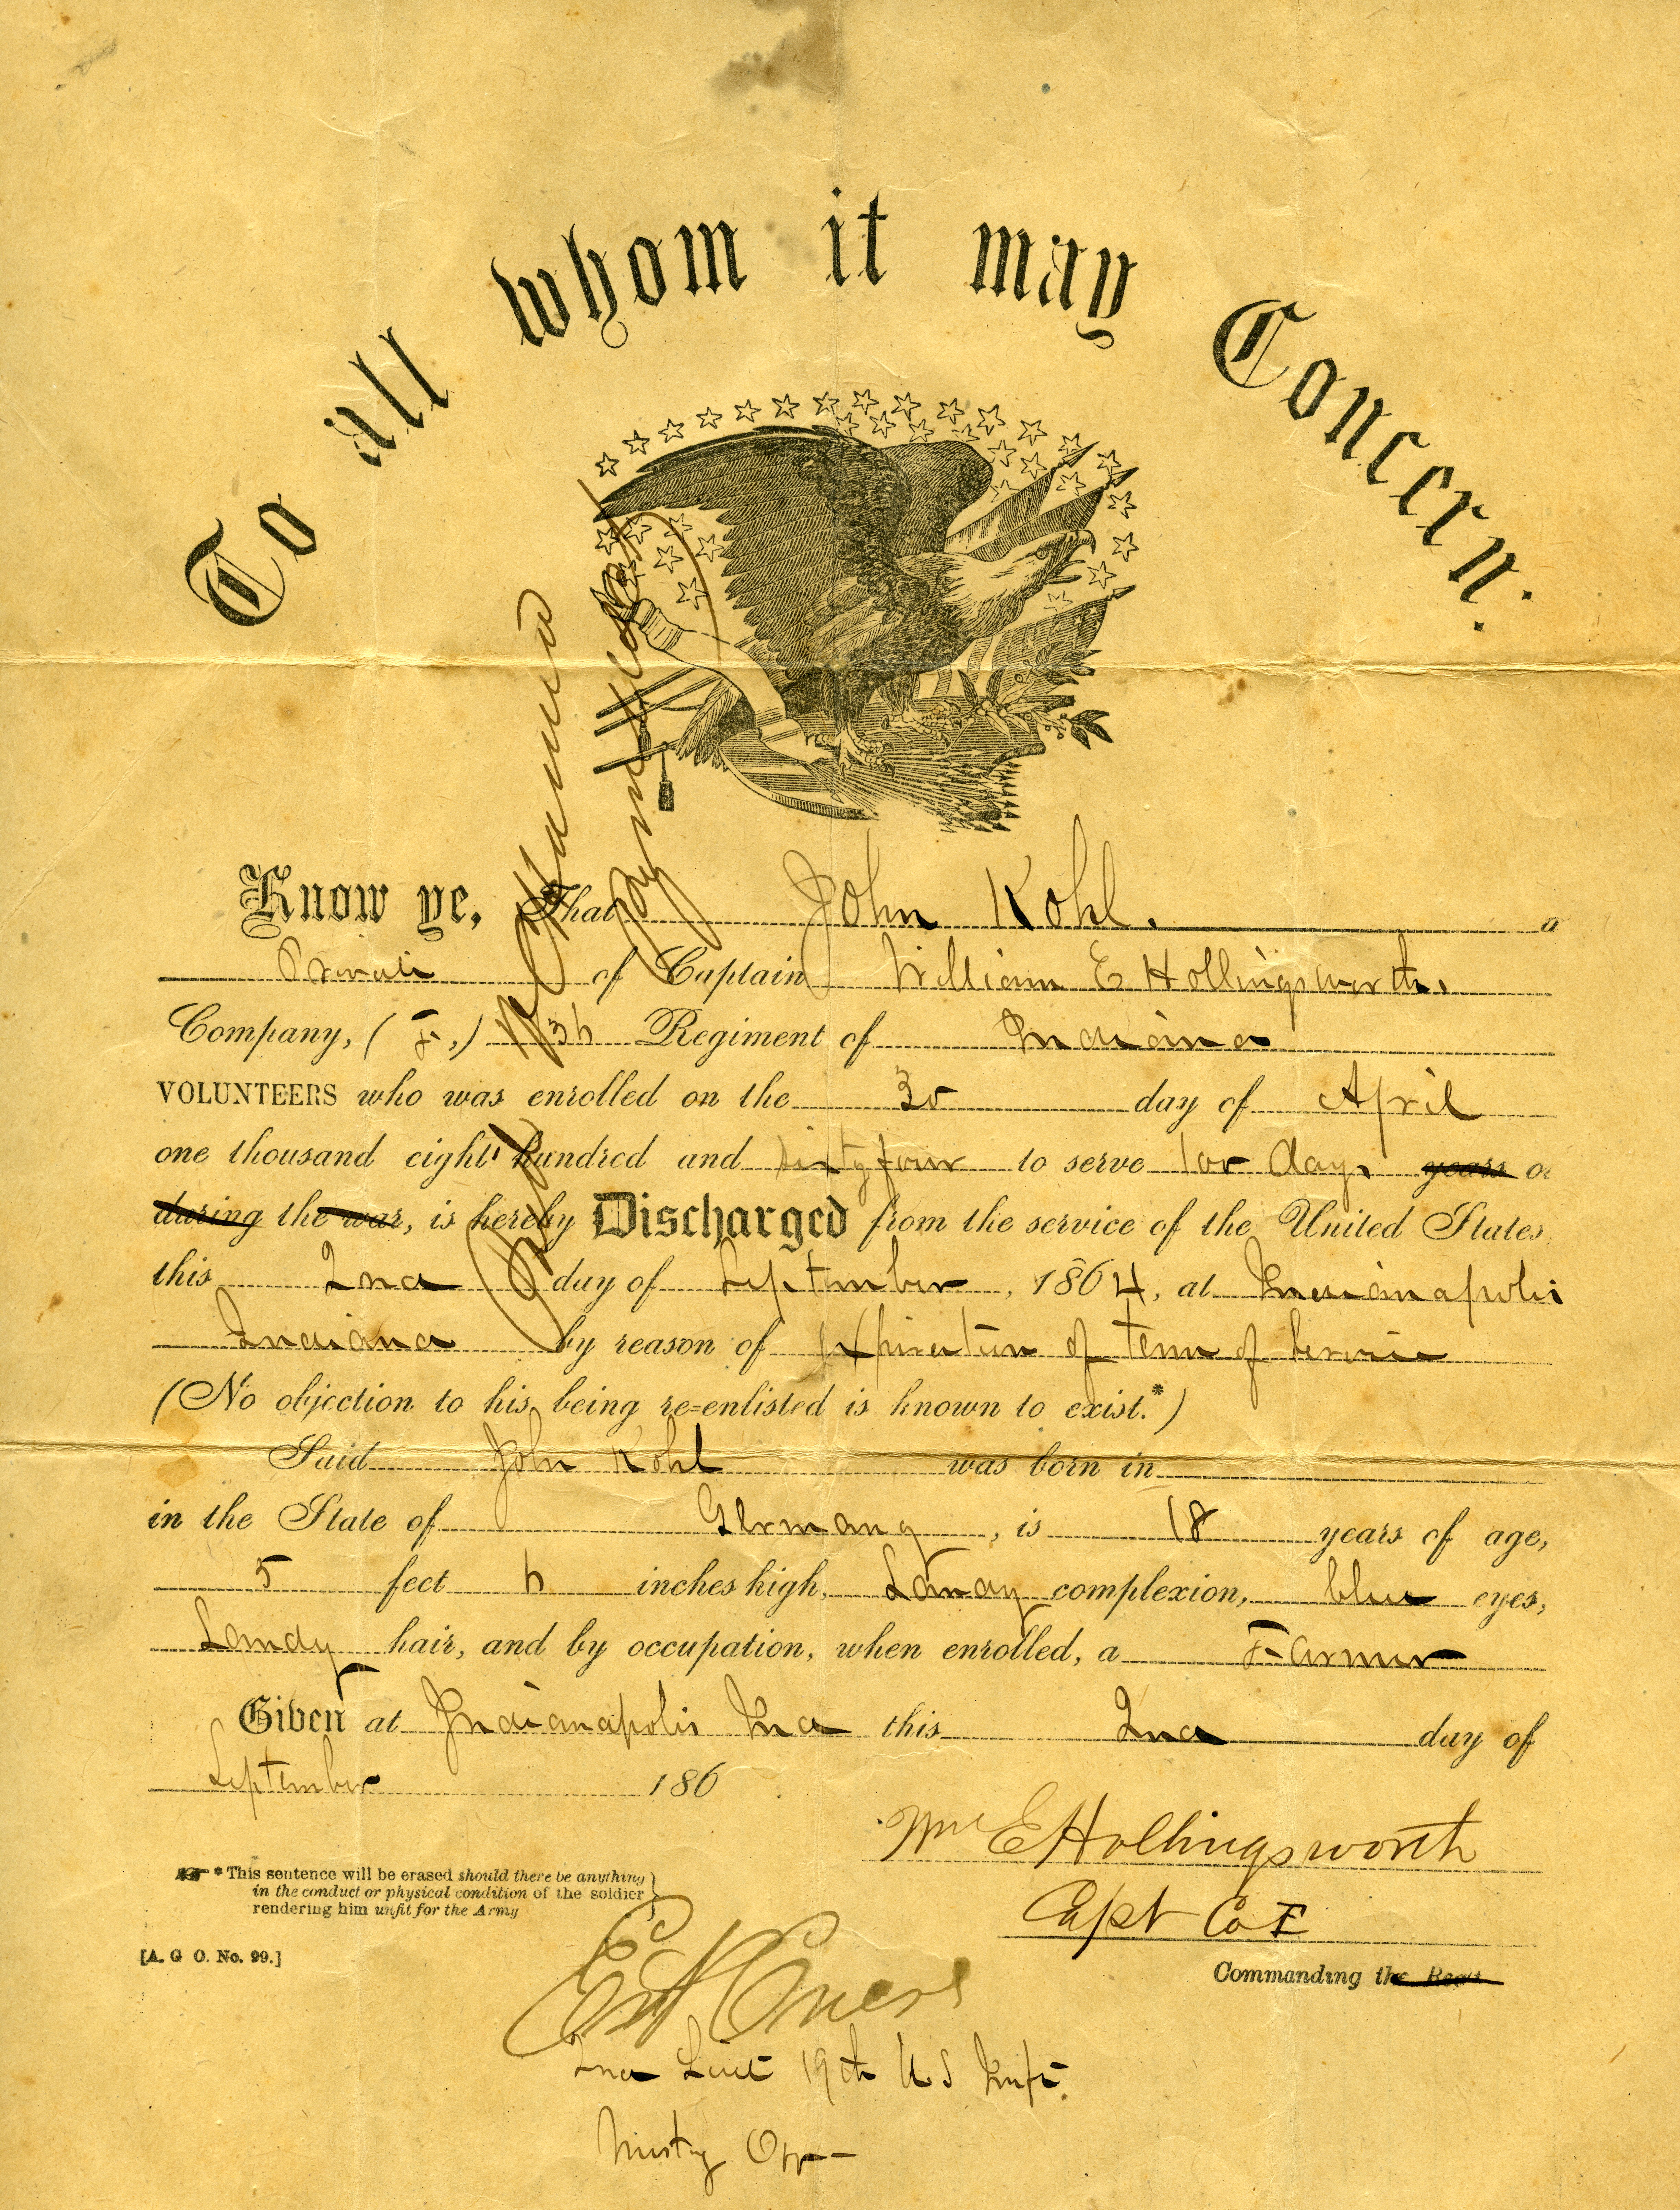 To all whom it may Concern:
Know ye, That John Kohl. a
Private of Captain William E Hollingsworth.
Company, (F,) 136 Regiment of Indiana
VOLUNTEERS who was enrolled on the 30 day of April
one thousand eight hundred and sixty four to serve 100 days years or
during the war, is hereby Discharged from the service of the United States
this 2nd day of September, 1864, at Indianapolis
Indiana by reason of Expiration of term of Service
(No objection to his being re-enlisted is known to exist.*)
Said John Kohl was born in
in the State of Germany, is 18 years of age,
5 feet 6 inches high, Sandy complexion, blue eyes,
Sandy hair, and by occupation, when enrolled, a Farmer
Given at Indianapolis Ind this 2nd day of
September 186
Wm E Hollingsworth
Capt Co F
Commanding the Regt
*This sentence will be erased should there be anything
in the conduct or physical condition of the soldier
rendering him unfit for the Army
[A. G O. No. 99.]
2nd Lieut 19th U.S Inft.
Mustg Off
Paid
Paymaster